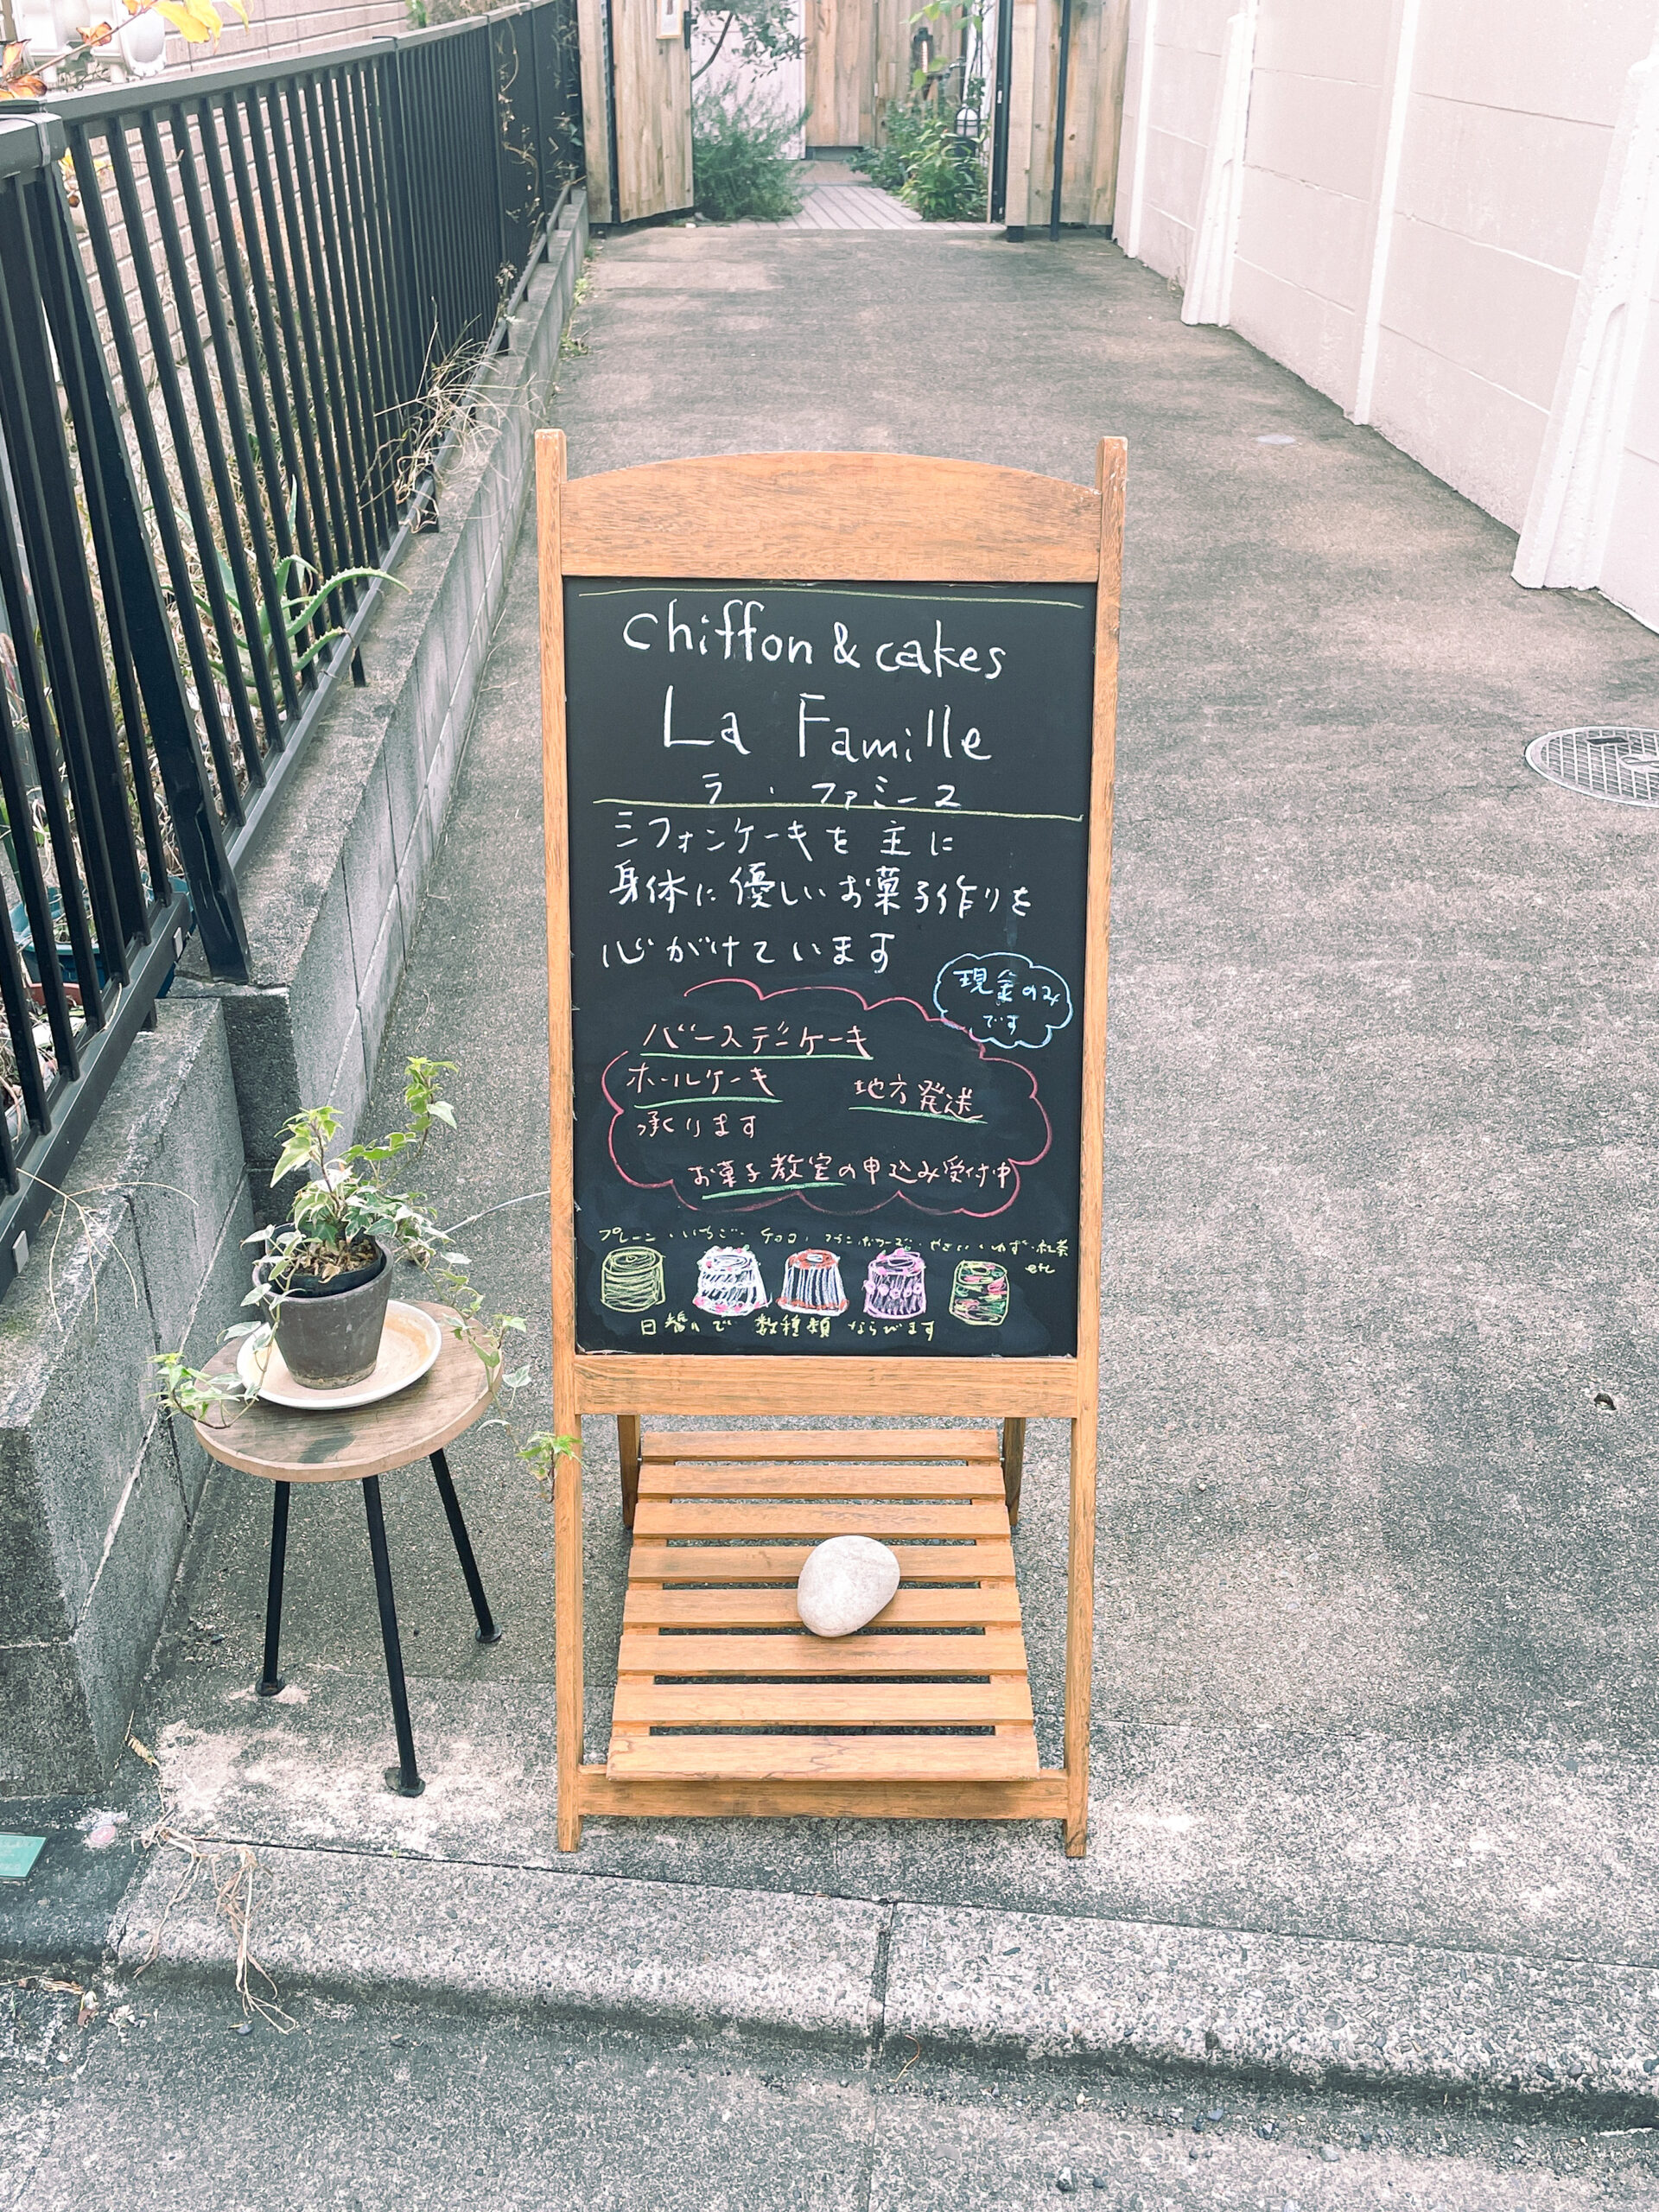 chiffon & cakes
La Famille
ラ・ファミーユ
シフォンケーキを主に
身体に優しいお菓子作りを
心がけています
現金のみ
です
バースデーケーキ
ホールケーキ
地方発送
承ります
お菓子教室の申込み受付中
プレーン・いちご・チョコ・フランボワーズ・やさい・ゆず・紅茶
etc
日替りで 数種類 ならびます